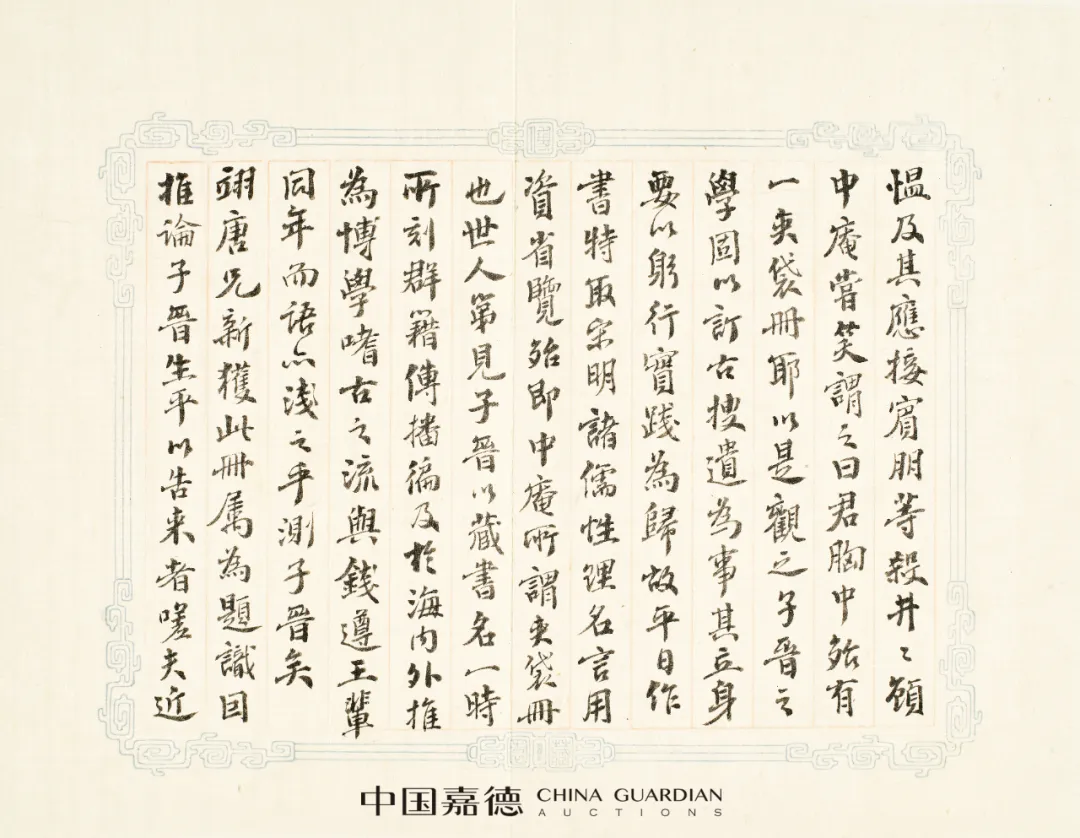 愠及其應接賓朋等殺井〻顧
中庵嘗笑謂之曰君胸中殆有
一夾袋冊耶以是觀之子晉之
學固以訂古搜遺為事其立身
要以躬行實踐為歸故平日作
書特取宋明諸儒性理名言用
資省覽殆即中庵所謂夾袋冊
也世人第見子晉以藏書名一時
所刻群籍傳播徧及於海内外推
為博學嗜古之流與錢遵王輩
同年而語亦淺之乎測子晉矣
翊唐兄新獲此冊属為題識因
推論子晉生平以告来者嗟夫近
中国嘉德 CHINA GUARDIAN
AUCTIONS